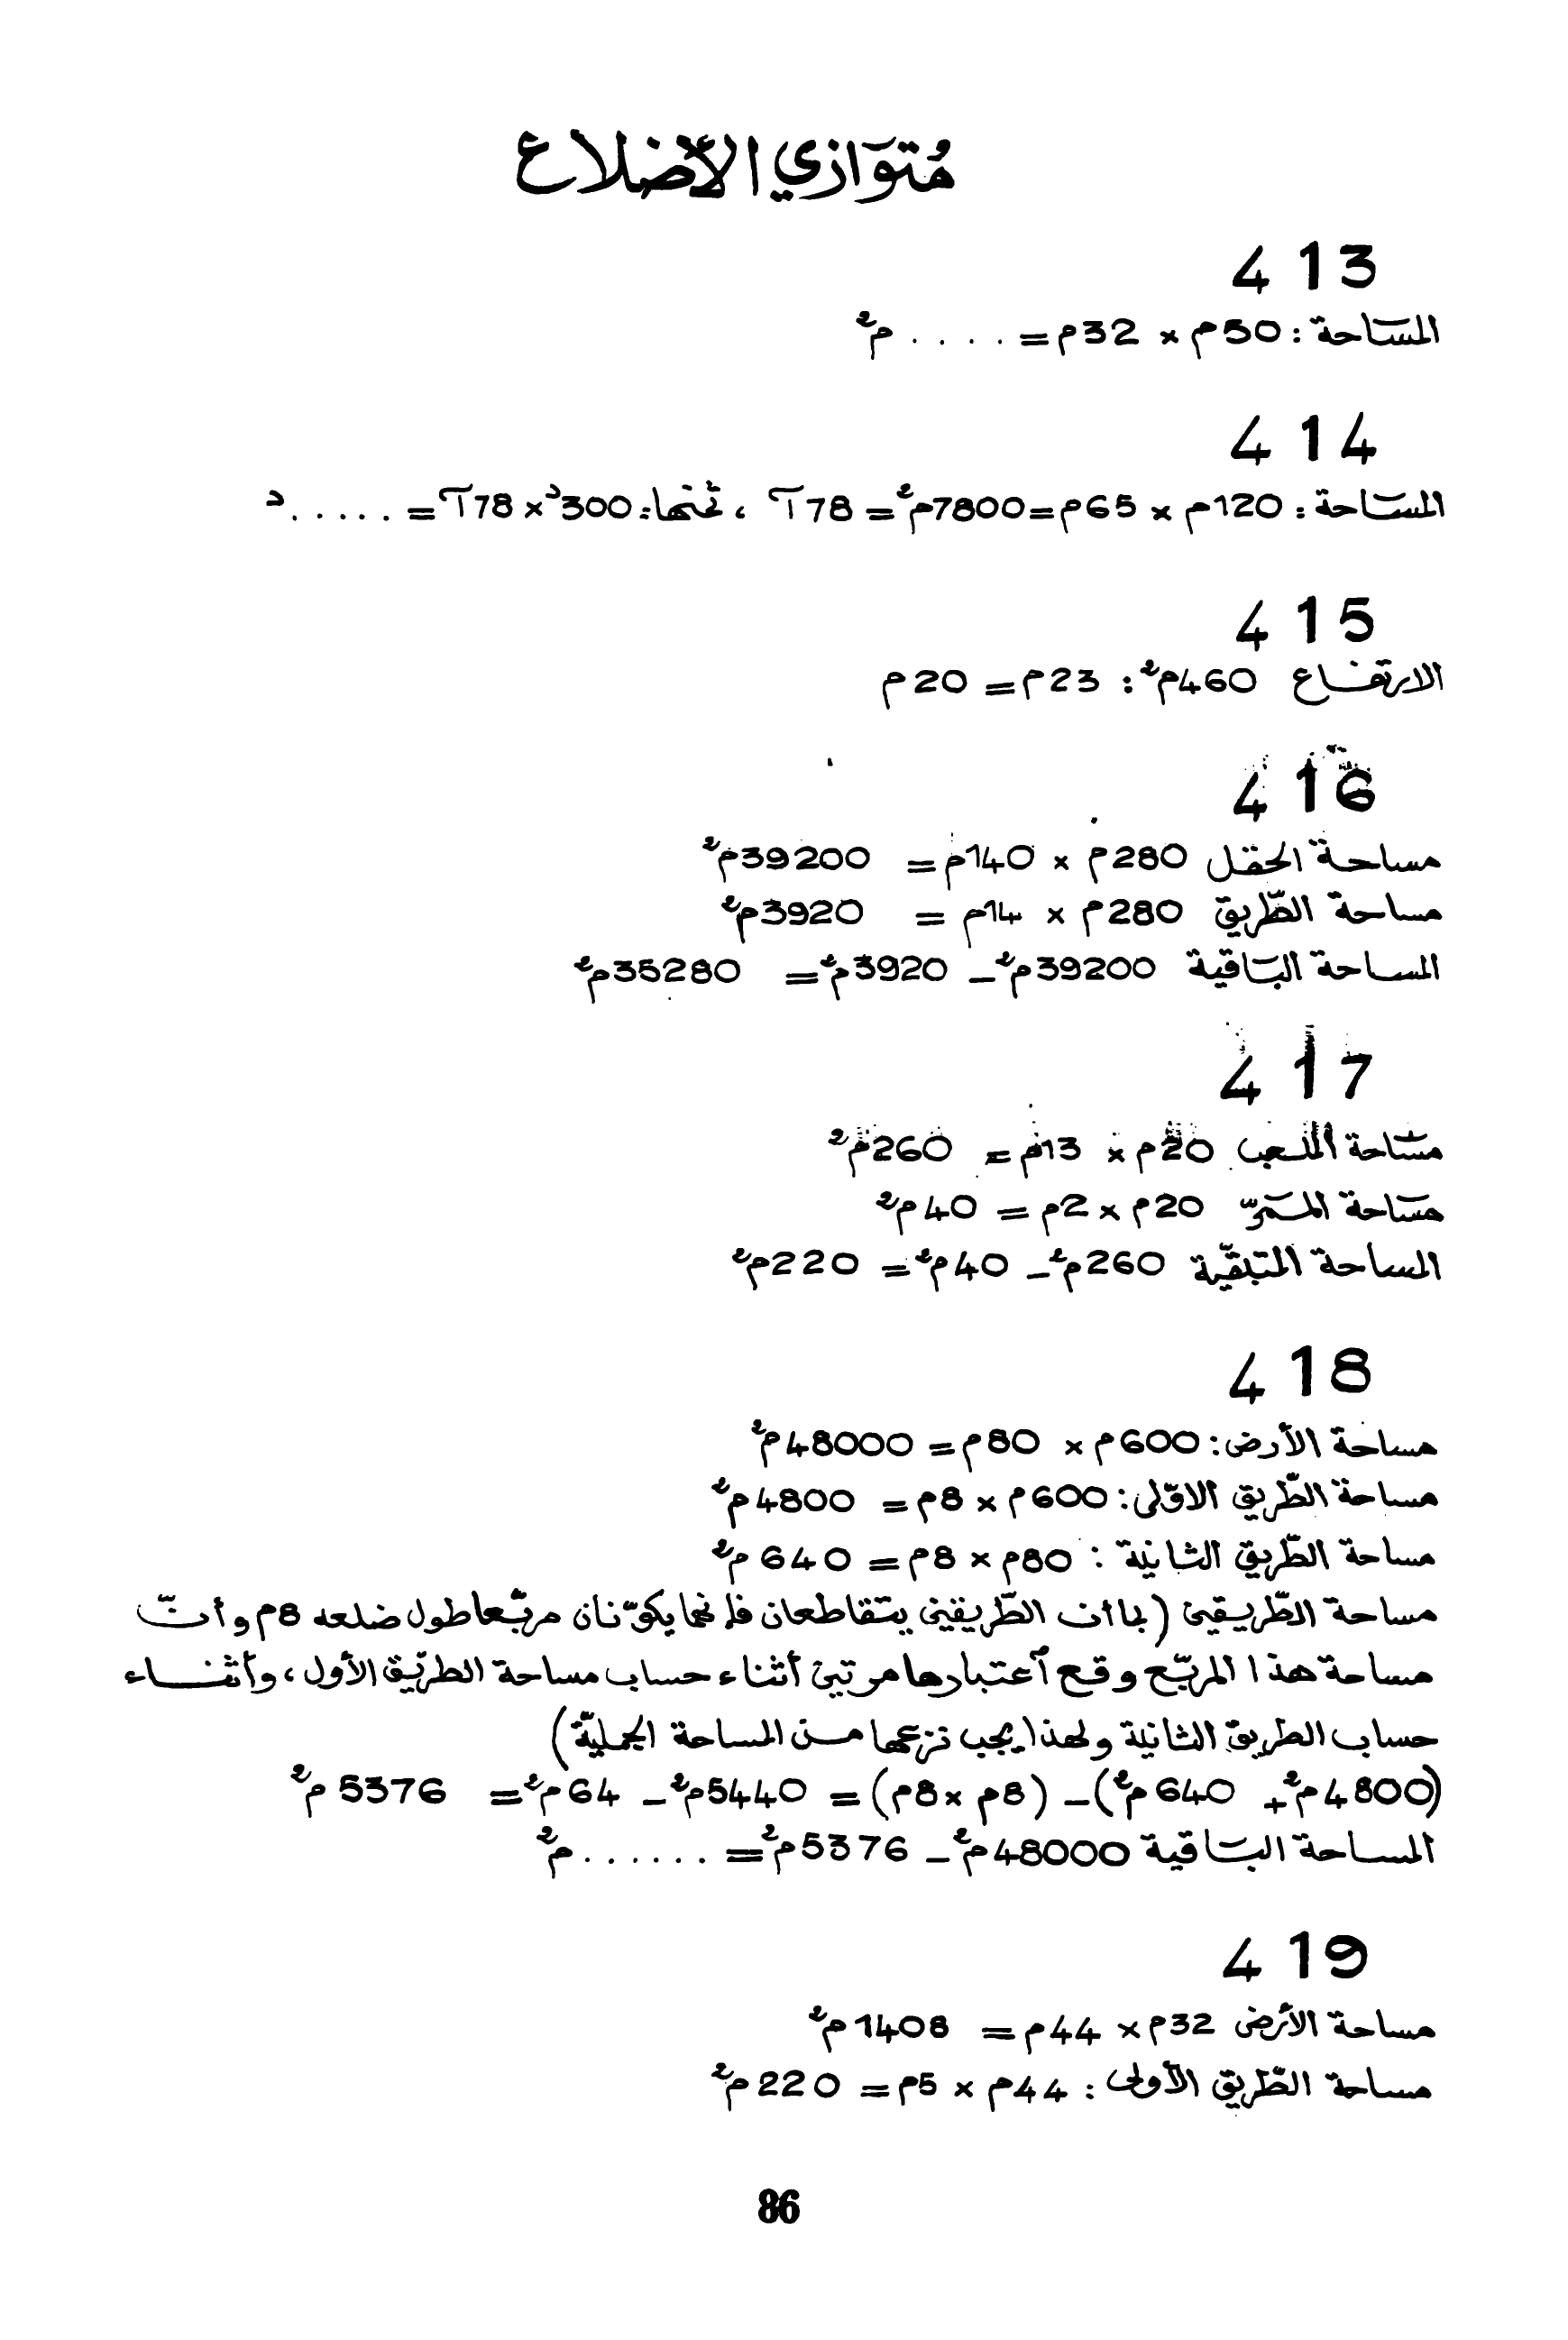 مُتوَازي الأضلاع
413
المسَاحة: 50م × 32م = .... م²
414
المسَاحة: 120م × 65م = 7800م² = 78آ، ثمنها: 300د × 78آ = ..... د
415
الارتفاع 460م² : 23م = 20م
416
مساحة الحقل 280م × 140م = 39200م²
مساحة الطّريق 280م × 14م = 3920م²
المساحة البَاقية 39200م² – 3920م² = 35280م²
417
مسَاحة الملعب 20م × 13م = 260م²
مسَاحة الممَرّ 20م × 2م = 40م²
المساحة المتبقيّة 260م² – 40م² = 220م²
418
مساحة الأرض: 600م × 80م = 48000م²
مساحة الطّريق الاوّلى: 600م × 8م = 4800م²
مساحة الطّريق الثانية: 80م × 8م = 640م²
مساحة الطّريقين (بما ان الطّريقين يتقاطعان فإنهما يكوّنان مربّعا طول ضلعه 8م وأنّ
مساحة هذا المربّع وقع اعتبارها مرتين أثناء حساب مساحة الطريق الأول، وأثناء
حساب الطريق الثانية ولهذا يجب نزعها من المساحة الجمليّة)
(4800م² + 640م²) – (8م × 8م) = 5440م² – 64م² = 5376م²
المساحة البَاقية 48000م² – 5376م² = ...... م²
419
مساحة الأرض 32م × 44م = 1408م²
مساحة الطّريق الأولى: 44م × 5م = 220م²
86